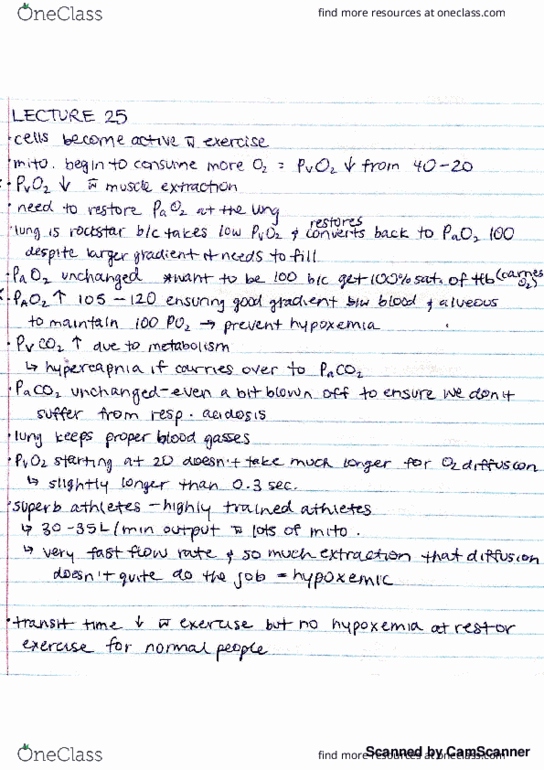 OneClass
find more resources at oneclass.com
LECTURE 25
· cells become active w̄ exercise
· mito. begin to consume more O₂ = PvO₂ ↓ from 40-20
· PvO₂ ↓ w̄ muscle extraction
· need to restore PaO₂ at the lung
restores
· lung is rockstar b/c takes low PvO₂ & converts back to PaO₂ 100
despite larger gradient it needs to fill
· PaO₂ unchanged *want to be 100 b/c get 100% sat. of Hb (carries O₂)
· PAO₂ ↑ 105-120 ensuring good gradient b/w blood & alveous
to maintain 100 PO₂ → prevent hypoxemia
· PvCO₂ ↑ due to metabolism
↳ hypercapnia if carries over to PaCO₂
· PaCO₂ unchanged - even a bit blown off to ensure we don't
suffer from resp. acidosis
· lung keeps proper blood gasses
· PvO₂ starting at 20 doesn't take much longer for O₂ diffusion
↳ slightly longer than 0.3 sec.
· superb athletes - highly trained athletes
↳ 30-35L/min output w̄ lots of mito.
↳ very fast flow rate & so much extraction that diffusion
doesn't quite do the job = hypoxemic
· transit time ↓ w̄ exercise but no hypoxemia at rest or
exercise for normal people
OneClass
find more resources at oneclass.com
Scanned by CamScanner